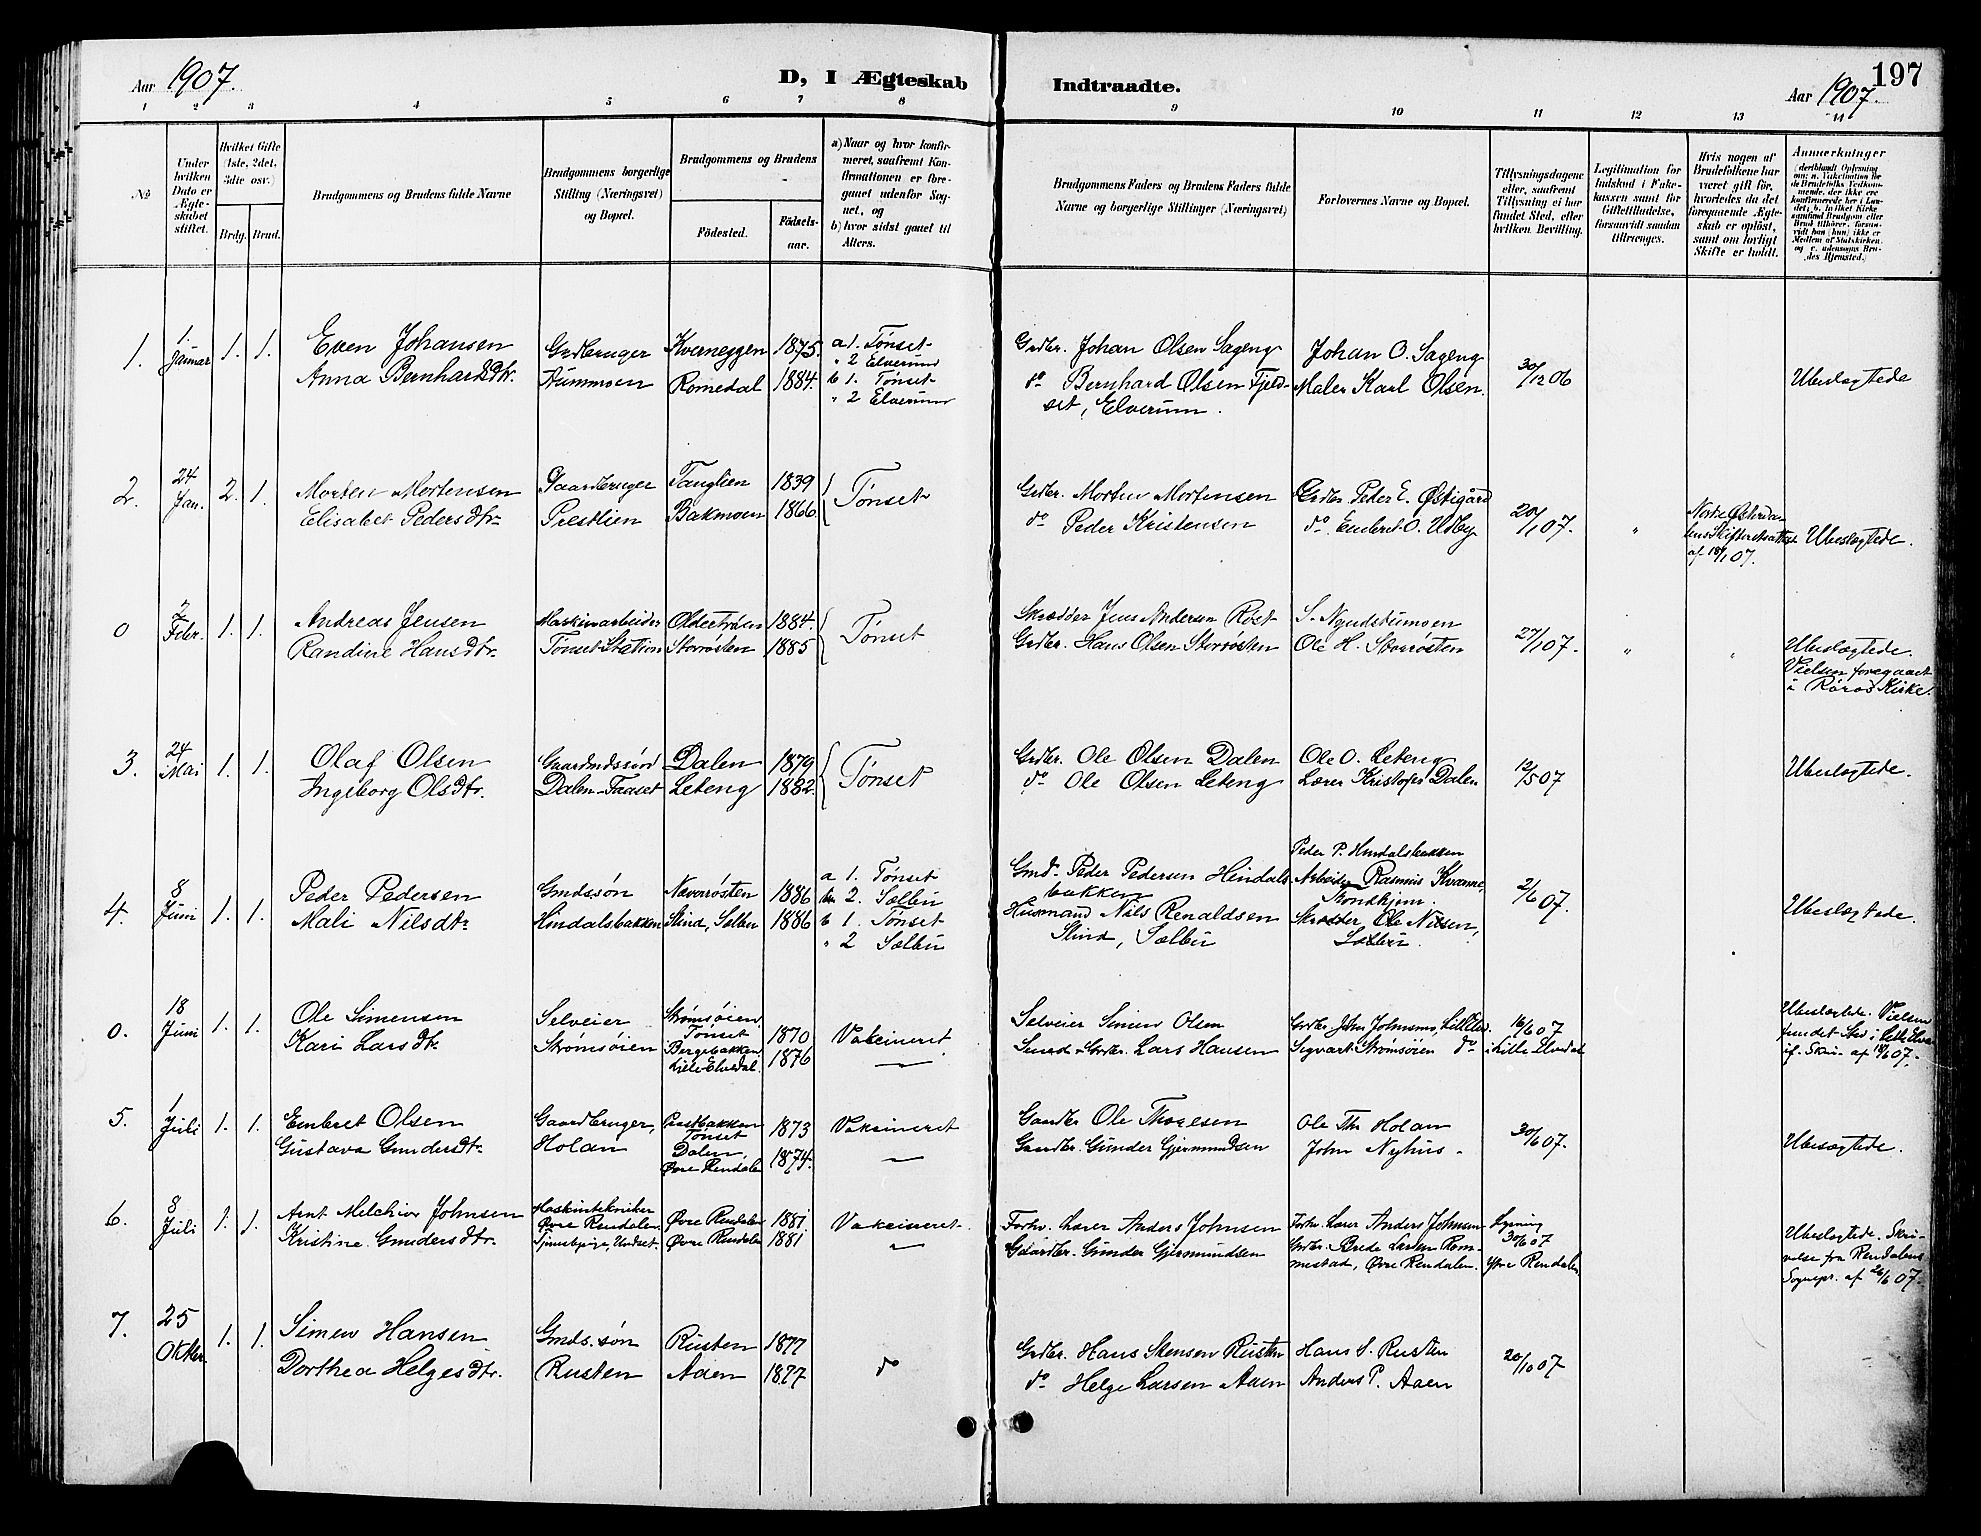 Aar 1907. D, I Ægteskab Indtraadte. Aar 1907. 197
1 2 3 4 5 6 7 8 9 10 11 12 13 14
No
Under hvilken Dato er Ægteskabet stiftet.
Hvilket Gifte (1ste, 2det, 3die osv.)
Brdg. Brud.
Brudgommens og Brudens fulde Navne
Brudgommens borgerlige Stilling (Næringsvei) og Bopæl.
Brudgommens og Brudens
Fødested. Fødselsaar.
a) Naar og hvor konfirmeret, saafremt Konfirmationen er foregaaet udenfor Sognet, og
b) hvor sidst gaaet til Alters.
Brudgommens Faders og Brudens Faders fulde Navne og borgerlige Stillinger (Næringsvei)
Forlovernes Navne og Bopæl.
Tillysningsdagene eller, saafremt Tillysning ei har fundet Sted, efter hvilken Bevilling.
Legitimation for Indskud i Enkekassen samt for Giftetilladelse, forsaavidt saadan tiltrænges.
Hvis nogen af Brudefolkene har været gift før, hvorledes da det foregaaende Ægteskab er opløst, samt om lovligt Skifte er holdt.
Anmærkninger
1. 1. Januar 1. 1. Even Johansen Grdbruger Kverneggen 1875. a 1. Tønset Grdbr. Johan Olsen Sageng Johan O. Sageng 30/12 06
" 2 Elverum
Anna Bernhardsdtr. Aummoen Romedal 1884. b 1. Tønset do Bernhard Olsen Fjeld- Maler Karl Olsen. Ubeslægtede
" 2 Elverum set, Elverum.
2. 24 Jan. 2. 1. Morten Mortensen Gaardbruger Tanglien 1839 Tønset Grdbr. Morten Mortensen Grdbr. Peder E. Østigård 20/1 07. "
Elisabet Pedersdtr. Prestlien Bakmoen 1866 do Peder Kristensen do. Embret O. Udby Ubeslægtede.
af 18/1 07.
0 2 Febr. 1. 1. Andreas Jensen Maskinarbeider 1884. Tønset Skrædder Jens Andersen Røst 27/1 07. " "
Randine Hansdtr. Tønset Station Storrøsten 1885 Grdbr. Hans Olsen Storrøsten Ole H. Storrøsten Ubeslægtede.
Vielsen foregaaet
i Røros Kirke.
3. 24 Mai 1. 1. Olaf Olsen Gaardmdssøn Dalen 1879 Tønset Grdbr. Ole Olsen Dalen Ole O. Leteng 12/5 07
Ingeborg Olsdtr. Dalen-Faaset Leteng 1882. do Ole Olsen Leteng Lærer Kristofer Dalen Ubeslægtede.
4. 8 Juni 1. 1. Peder Pedersen Gmdssøn Nævorrøsten 1886 a 1. Tønset Gmd. Peder Pedersen Hindals- Peder P. Hindalsbakken 2/6 07.
2. Sælbu bakken Arbeider Rasmus Kvamme, Trondhjem.
Mali Nilsdtr. Hindalsbakken Slind, Selbu 1886 b 1. Tønset Husmand Nils Renaldsen Skrædder Ole Nilsen, Ubeslægtede.
" 2 Sælbu Slind, Sælbu Sælbu.
0. 18 Juni 1. 1. Ole Simensen Selveier Strømsøien, Tønset 1870 Vakcineret Selveier Simen Olsen 16/6 07 Ubeslægtede. Vielsen
Kari Larsdtr. Strømsøien Bergebakken, Lille-Elvedal. 1876 " Lars Hansen Sigvart Strømsøien do i Lille Elvedal
if. Skriv. af 18/6 07.
5. 1 Juli 1. 1. Embret Olsen Gaardbruger, Tønset 1873 Vakcineret Gaardbr Ole Thoresen Ole Th. Holan 30/6 07.
Gustava Gundersdtr. Holan Dalen, Øvre Rendalen 1874. " Gaardbr. Gunder Gjermundsen John Nyhus. Ubeslægtede.
6. 8 Juli 1. 1. Arnt Melchior Johnsen Maskintekniker Øvre Rendalen. Øvre Rendalen 1881 Vakcineret. Forhv. Lærer Anders Johnsen Forhv. Lærer Anders Johnsen Lysning 30/6 07
Kristine Gundersdtr. Tjenestepige, Undset. Øvre Rendalen 1881 " Gaardbr. Gunder Gjermundsen Grdbr. Brede Larsen Rommestad, Øvre Rendalen. Øvre Rendalen. Ubeslægtede. Skrivelse fra Rendalens Sognepr. af 26/6 07.
7. 25 Oktbr. 1. 1. Simen Hansen Gmds. søn Rusten 1877 Grdbr. Hans Stensen Rusten Hans S. Rusten 20/10 07
Dorthea Helgesdtr. Rusten Aaen 1877 do do Helge Larsen Aaen Anders P. Aaen